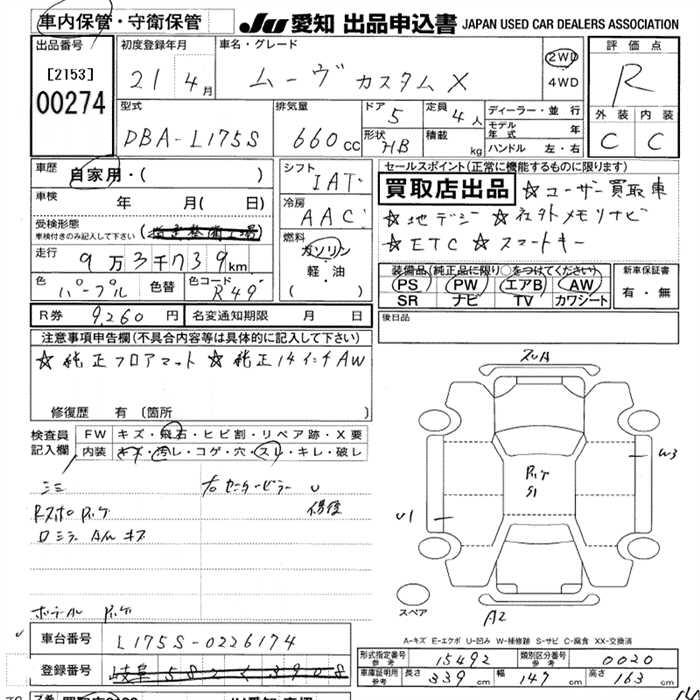 車内保管・守衛保管
JU 愛知 出品申込書 JAPAN USED CAR DEALERS ASSOCIATION
出品番号
[2153]
00274
初度登録年月
21 4月
車名・グレード
ムーヴ カスタムX
2WD
4WD
評価点
R
外装 内装
C C
型式
DBA-L175S
排気量
660cc
ドア 5
形状 HB
定員 4人
積載 kg
ディーラー・並 行
モデル年式 年
ハンドル 左・右
車歴
自家用・( )
車検
年 月( 日)
受検形態
車検付きのみ記入して下さい
(指定整備工場)
走行
9万3千739km
色
パープル
色替
色コード
R49
シフト
IAT
冷房
AAC
燃料
ガソリン
軽・油
( )
セールスポイント(正常に機能するものに限ります)
買取店出品 ☆ユーザー買取車
☆地デジ ☆社外メモリナビ
☆ETC ☆スマートキー
装備品(純正品に限り○をつけてください)
PS PW エアB AW
SR ナビ TV カワシート
新車保証書
有・無
R券
9,260円
名変通知期限 月 日
後日品
注意事項申告欄(不具合内容等は具体的に記入して下さい)
☆純正フロアマット ☆純正14インチAW
修復歴 有 (箇所 )
検査員
記入欄
FW キズ・飛石・ヒビ割・リペア跡・X要
内装 キズ・汚レ・コゲ・穴・スレ・キレ・破レ
U
W3
U1
スペア
A2
A-キズ E-エクボ U-凹み W-補修跡 S-サビ C-腐食 XX-交換済
車台番号
L175S-0226174
登録番号
岐阜 582 く 3908
形式指定番号
参考
15492
類別区分番号
参考
0020
車庫証明用
参考
長さ 339cm
幅 147cm
高さ 163cm